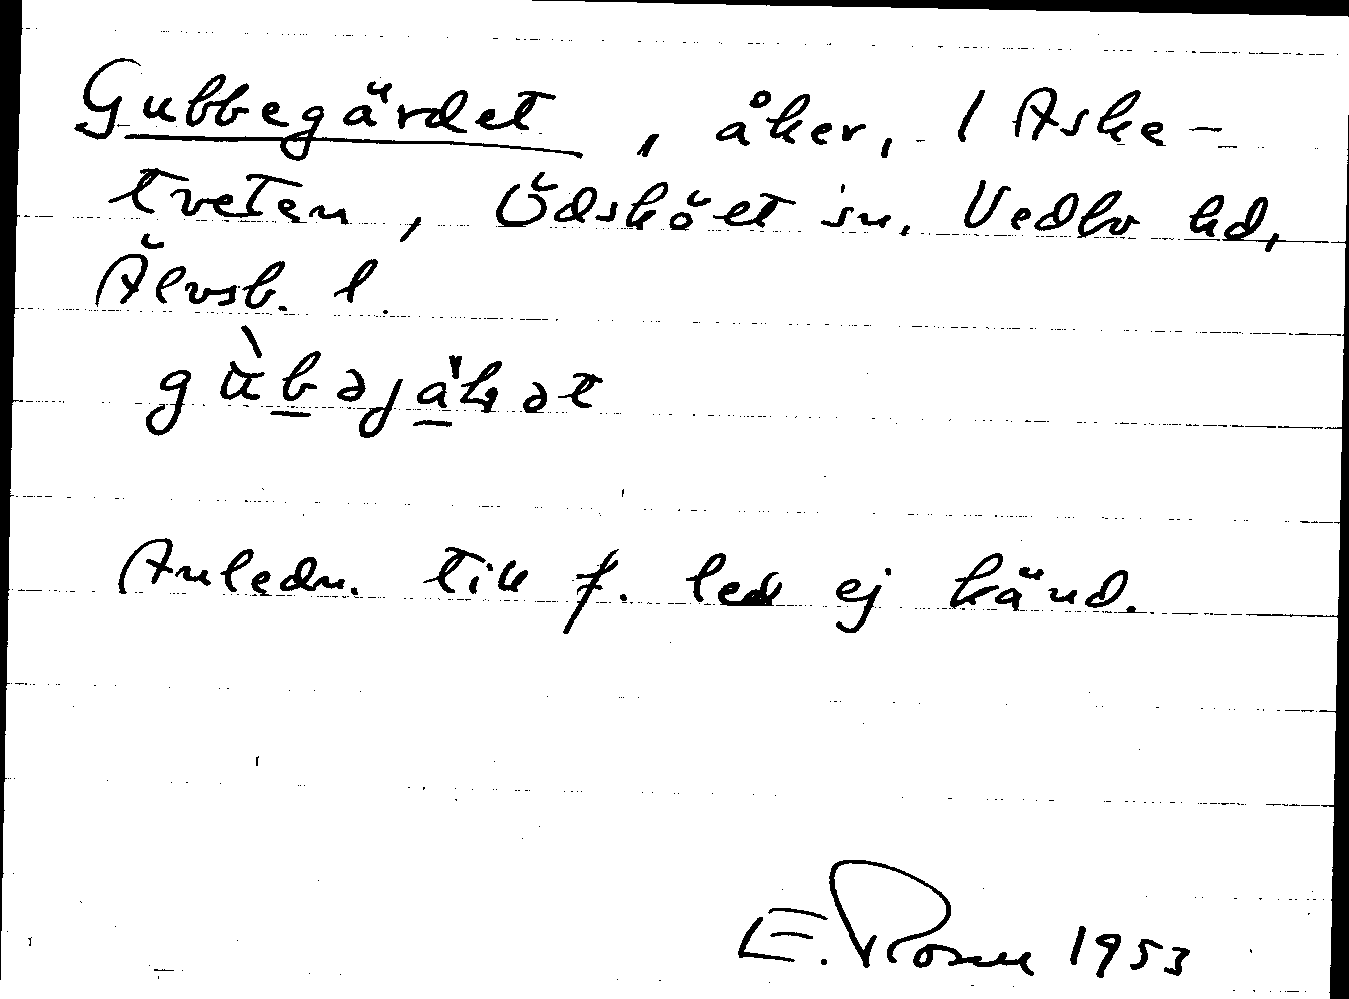 Gubbegärdet, åker, 1 Aske-
tveten, Ödsköet sn. Vedbo hd,
Älvsb. l.

Anledn. till f. led ej känd.
E. Rosen 1953